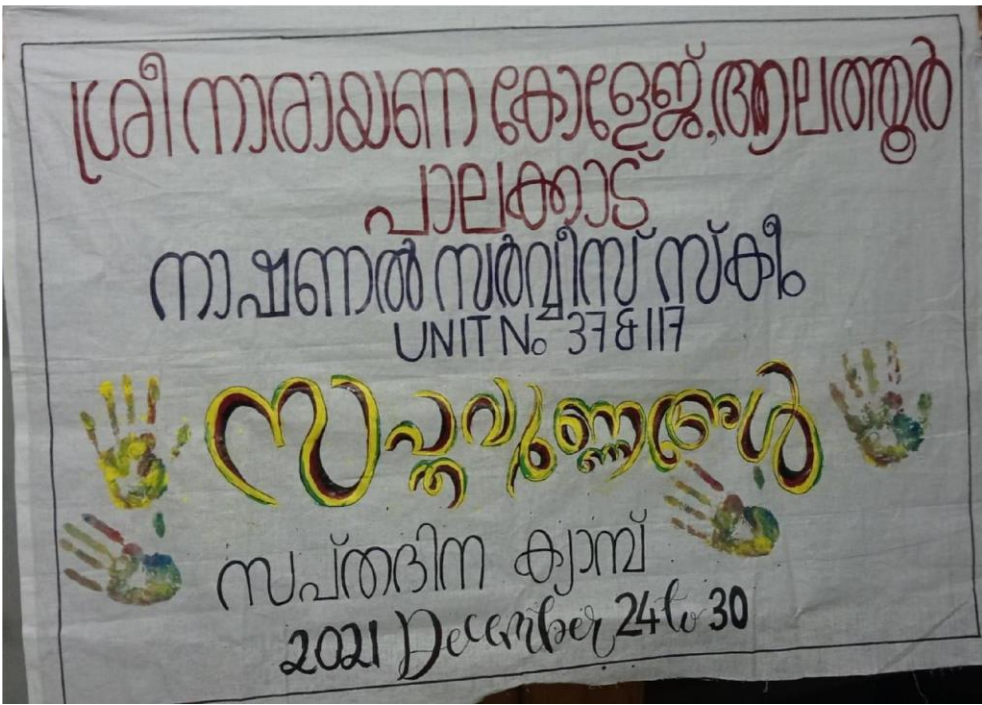 ശ്രീനാരായണ കോളേജ്, ആലത്തൂർ
പാലക്കാട്
നാഷണൽ സർവ്വീസ് സ്കീം
UNIT No 37 & 117
സപ്തദിന ക്യാമ്പ്
2021 December 24 to 30